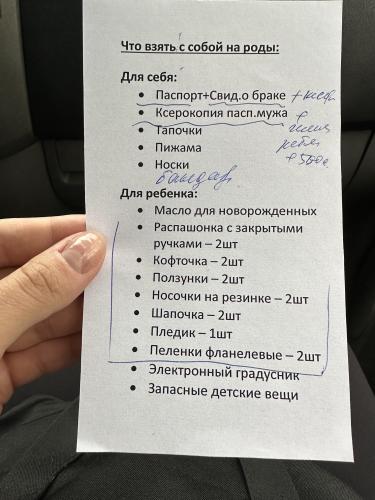 Что взять с собой на роды:
Для себя:
• Паспорт+Свид.о браке + ксер
• Ксерокопия пасп.мужа +
• Тапочки
• Пижама
• Носки
бандаж
Для ребенка:
• Масло для новорожденных
• Распашонка с закрытыми
ручками – 2шт
• Кофточка – 2шт
• Ползунки – 2шт
• Носочки на резинке – 2шт
• Шапочка – 2шт
• Пледик – 1шт
• Пеленки фланелевые – 2шт
• Электронный градусник
• Запасные детские вещи